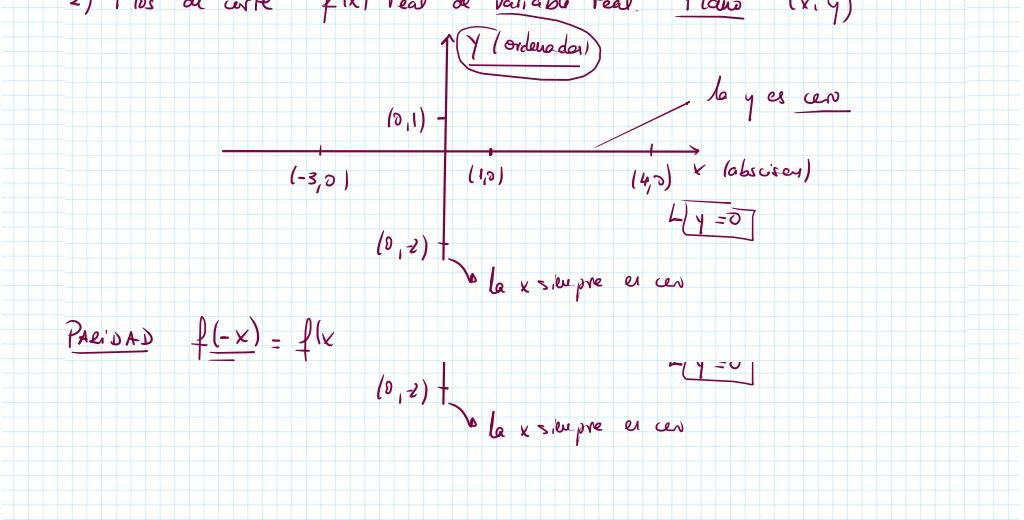 2) Ptos de corte f(x) real de variable real. Plano (x, y)
Y (ordenadas)
la y es cero
(0,1)
(-3,0) (1,0) (4,0) x (abscisas)
y = 0
(0,-2)
la x siempre es cero
PARIDAD f(-x) = f(x
y = 0
(0,-2)
la x siempre es cero